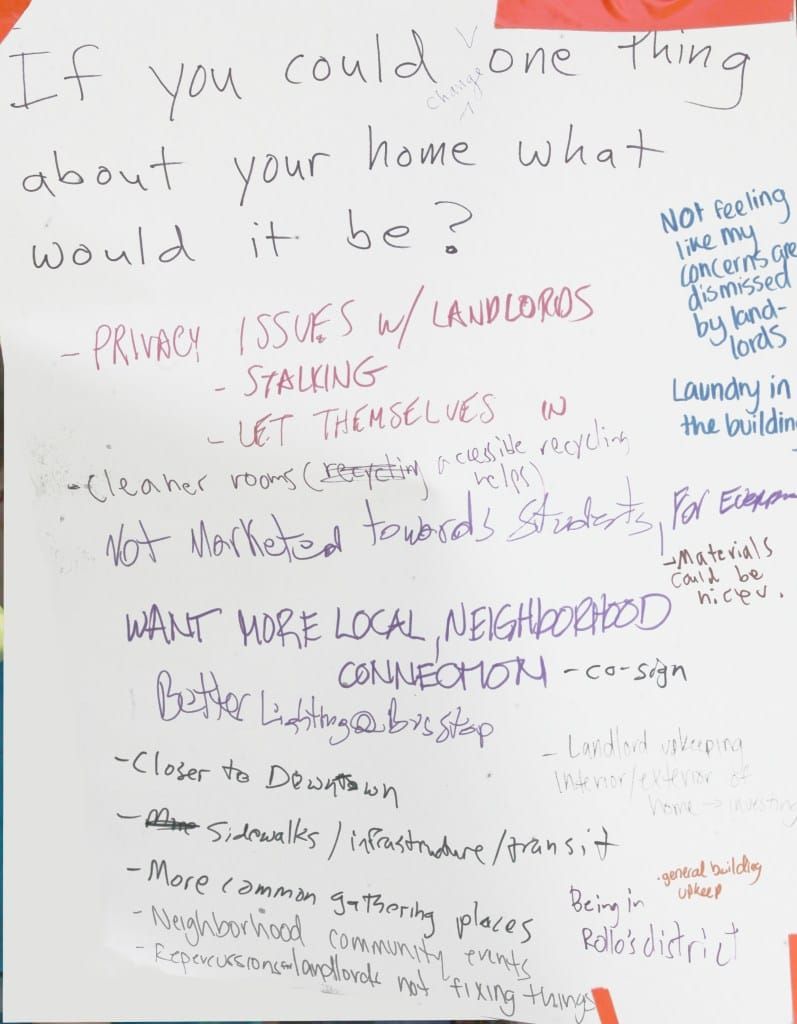 If you could change one thing
about your home what
would it be?
NOt feeling
like my
concerns are
dismissed
by land-
lords
Laundry in
the buildin
- PRIVACY ISSUES w/ LANDLORDS
- STALKING
- LET THEMSELVES IN
- Cleaner rooms (recycling accessible recycling
helps)
Not Marketed towards Students, For
- Materials
could be
nicer.
WANT MORE LOCAL, NEIGHBORHOOD
CONNECTION - co-sign
Better Lighting @ bus stop
- Landlord upkeeping
interior/exterior of
home → investing
- Closer to Downtown
- Sidewalks / infrastructure/transit
- More common gathering places
.general building
upkeep
Being in
Rollo's district
- Neighborhood community events
- Repercussions landlords not fixing things